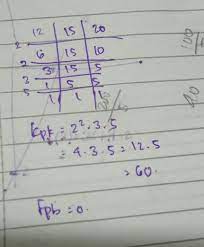 12 15 20
2 6 15 10
2 3 15 5
3 1 5 5
5 1 1 1
Kpk = 2².3.5
= 4.3.5 = 12.5
= 60.
Fpb = 0.